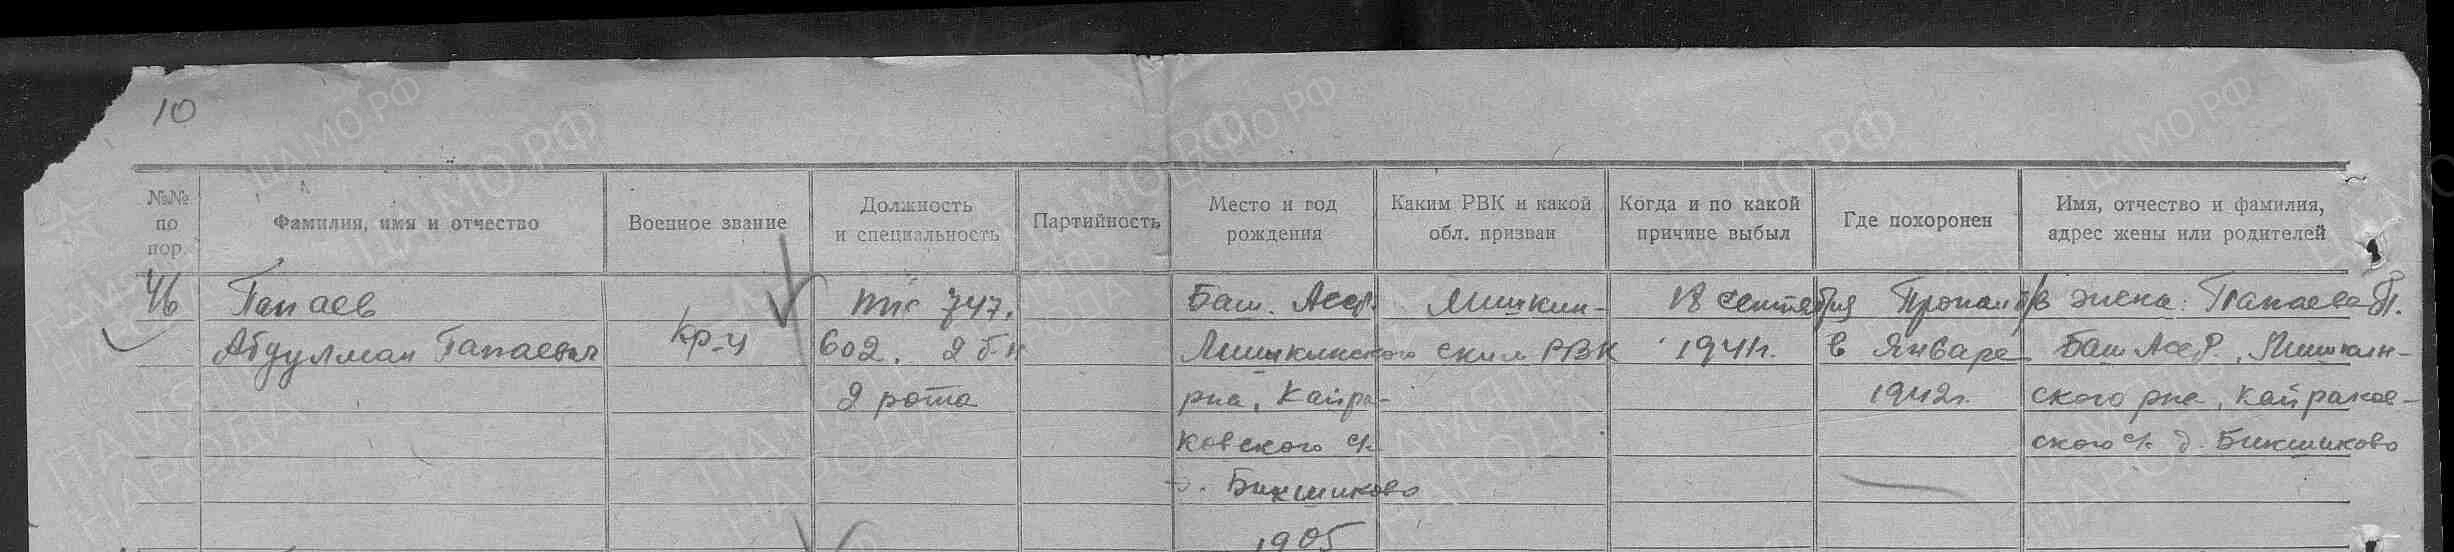 10
№№ по пор.
Фамилия, имя и отчество
Военное звание
Должность и специальность
Партийность
Место и год рождения
Каким РВК и какой обл. призван
Когда и по какой причине выбыл
Где похоронен
Имя, отчество и фамилия, адрес жены или родителей
46
Папаев
Абдулман Папаевич
кр-ц
ппс 747.
602. 2 б-н
2 рота
Баш. Асср.
Мишкинского
рна, Кайра-
ковского с/с
д. Бикшиково
1905
Мишкин-
ским РВК
18 сентября
1941г.
Пропал б/в
в Январе
1942г.
жена: Папаева П.
Баш Асср., Мишкин-
ского рна, Кайраков-
ского с/с д. Бикшиково
ЦАМО.РФ
ПАМЯТЬ НАРОДА